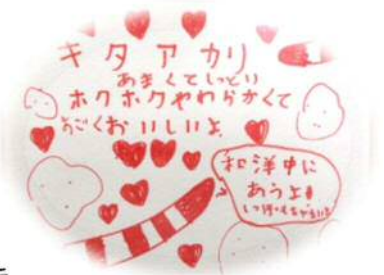 キタアカリ
あまくてしっとり
ホクホクやわらかくて
すごくおいしいよ
和洋中に
あうよ!